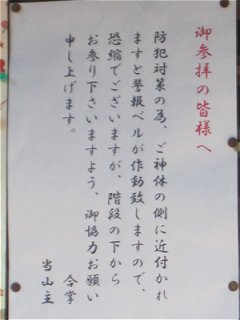 御参拝の皆様へ
防犯対策の為、ご神体の側に近付かれ
ますと警報ベルが作動致しますので、
恐縮でございますが、階段の下から
お参り下さいますよう、御協力お願い
申し上げます。
合掌
当山主